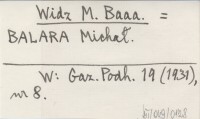 Widz M. Baaa. =
BALARA Michał.
W: Gaz. Podh. 19 (1931),
nr 8.